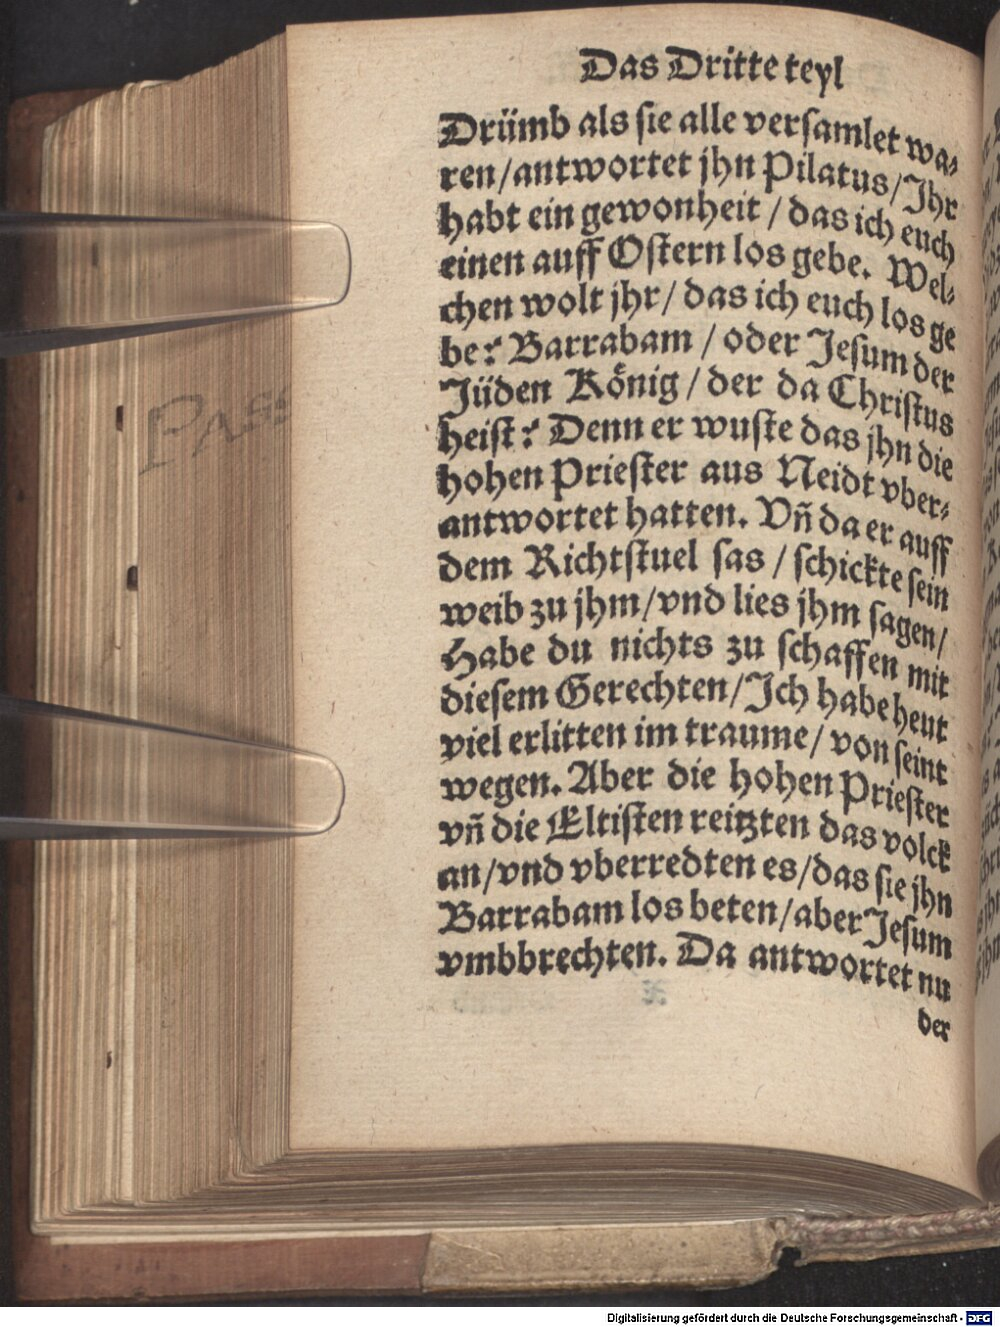 Das Dritte teyl
Drümb als sie alle versamlet wa⸗
ren/antwortet jhn Pilatus/Ihr
habt ein gewonheit/das ich euch
einen auff Ostern los gebe. Wel⸗
chen wolt jhr/das ich euch los ge
be? Barrabam/oder Jesum der
Jüden König/der da Christus
heist? Denn er wuste das jhn die
hohen Priester aus Neidt vber⸗
antwortet hatten. Vn̄ da er auff
dem Richtstuel sas/schickte sein
weib zu jhm/vnd lies jhm sagen/
Habe du nichts zu schaffen mit
diesem Gerechten/Ich habe heut
viel erlitten im traume/von seint
wegen. Aber die hohen Priester
vn̄ die Eltisten reitzten das volck
an/vnd vberredten es/das sie jhn
Barrabam los beten/aber Jesum
vmbbrechten. Da antwortet nu
der
PASS
Digitalisierung gefördert durch die Deutsche Forschungsgemeinschaft - DFG